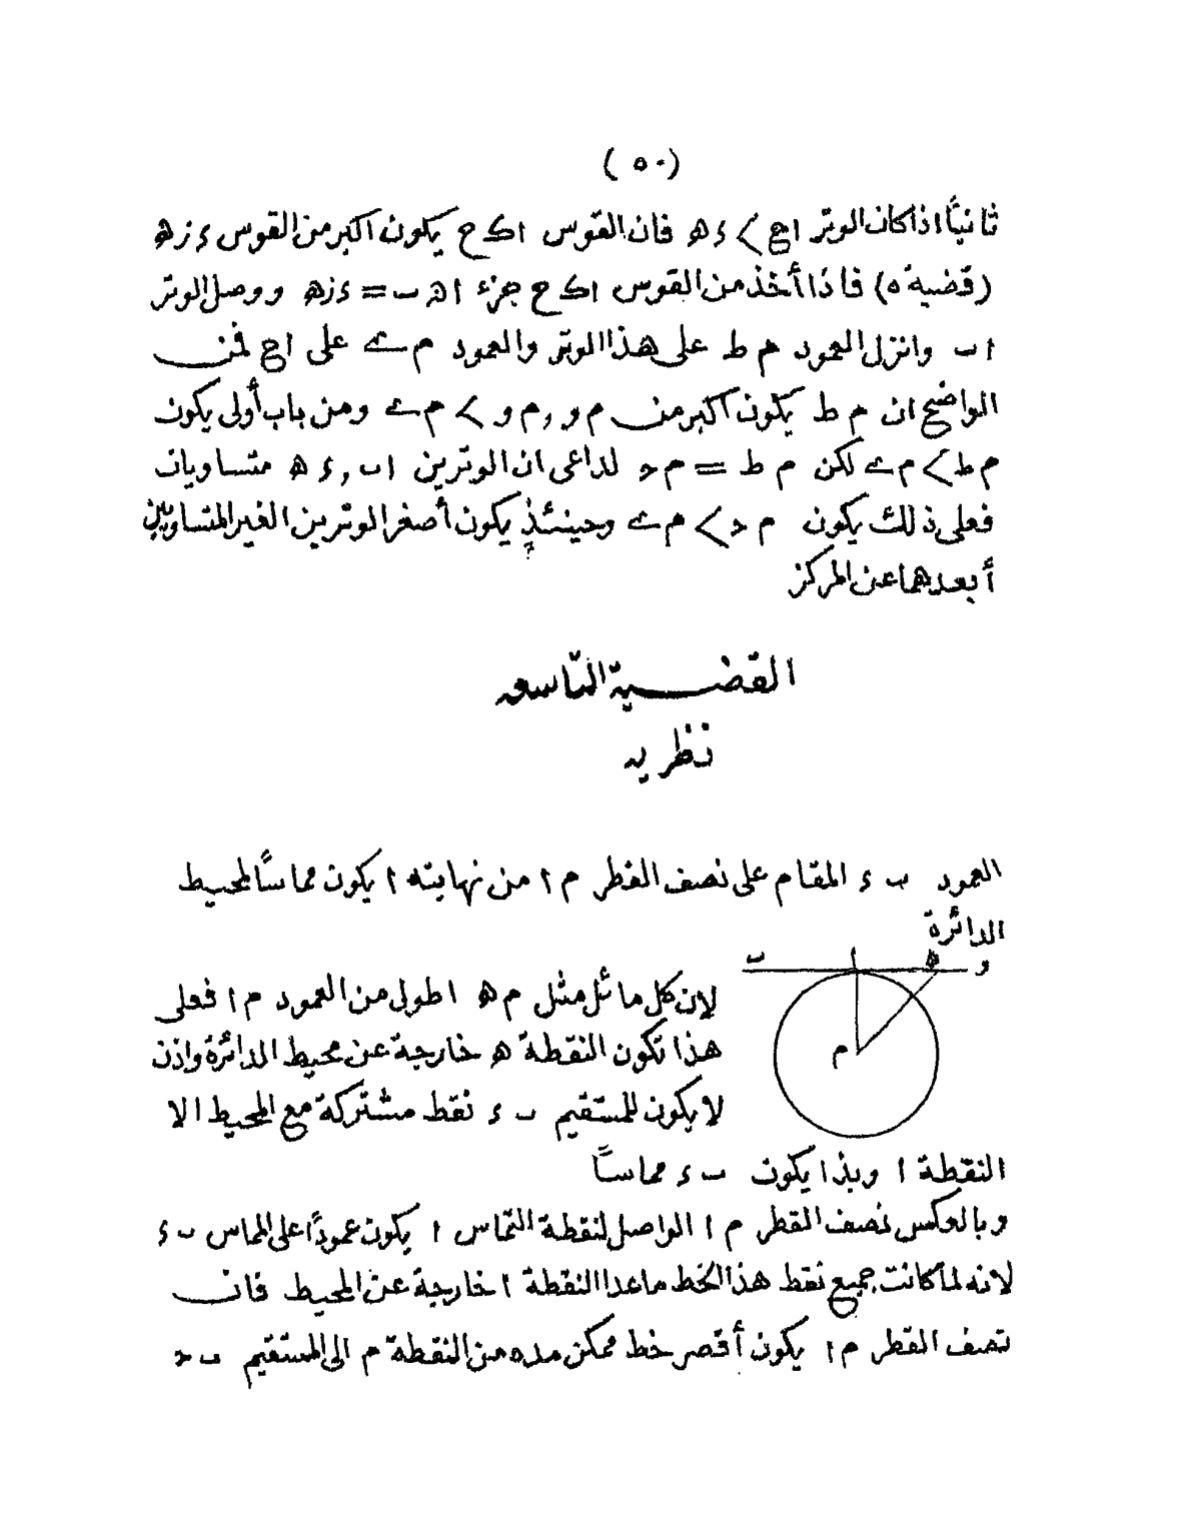 (٥٠)
ثانيًا اذا كان الوتر ا ج > ء ه فان القوس ا ك ح يكون اكبر من القوس ء ز ه
(قضية ٥) فاذا أخذ من القوس ا ك ح جزء ا ﻫ ب = ء ز ه ووصل الوتر
ا ب وانزل العمود م ط على هذا الوتر والعمود م ے على ا ج فمن
الواضح ان م ط يكون اكبر من م و , م و > م ے ومن باب أولى يكون
م ط > م ے لكن م ط = م د لداعى ان الوترين ا ب , ء ه متساويان
فعلى ذلك يكون م د > م ے وحينئذٍ يكون أصغر الوترين الغير المتساويين
أبعدهما عن المركز
القضية التاسعه
نظريه
العمود ب ء المقام على نصف القطر م ا من نهايته ا يكون مماسًا لمحيط
الدائرة
ب ا ه و
م
لان كل مائل مثل م ه اطول من العمود م ا فعلى
هذا تكون النقطة ه خارجة عن محيط الدائرة واذن
لا يكون للمستقيم ب ء نقط مشتركة مع المحيط الا
النقطة ا وبذا يكون ب ء مماسًا
وبالعكس نصف القطر م ا الواصل لنقطة التماس ا يكون عمودًا على المماس ب ء
لانه لما كانت جميع نقط هذا الخط ما عدا النقطة ا خارجة عن المحيط فان
نصف القطر م ا يكون أقصر خط ممكن مده من النقطة م الى المستقيم ب د